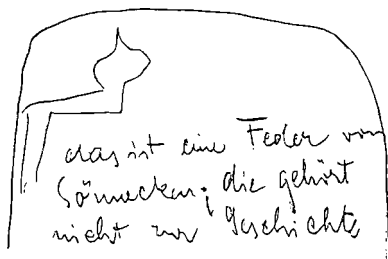 das ist eine Feder von
Sönnecken; die gehört
nicht zur Geschichte